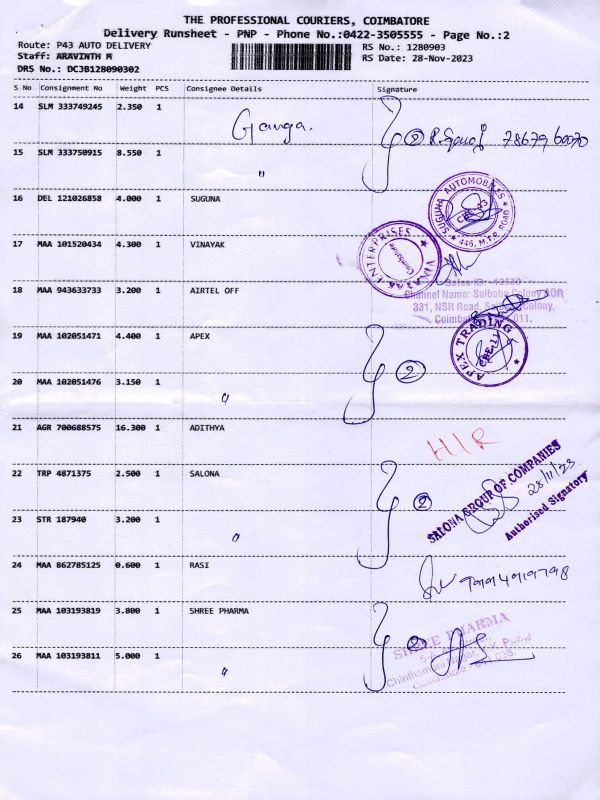 THE PROFESSIONAL COURIERS, COIMBATORE
Delivery Runsheet - PNP - Phone No.:0422-3505555 - Page No.:2
Route: P43 AUTO DELIVERY RS No.: 1280903
Staff: ARAVINTH M RS Date: 28-Nov-2023
DRS No.: DCJB128090302
S No Consignment No Weight PCS Consignee Details Signature
14 SLM 333749245 2.350 1 Ganga.
2 78679 60070
15 SLM 333750915 8.550 1 "
16 DEL 121026858 4.000 1 SUGUNA
SUGUNA AUTOMOBILES
446, M.T.P. ROAD
17 MAA 101520434 4.300 1 VINAYAK
VINAYAK ENTERPRISES
Coimbatore
18 MAA 943633733 3.200 1 AIRTEL OFF
Channel Name: Saibaba Colony
331, NSR Road, Colony,
19 MAA 102051471 4.400 1 APEX
APEX TRADING
2
20 MAA 102051476 3.150 1 "
21 AGR 700688575 16.300 1 ADITHYA
H/R
22 TRP 4871375 2.500 1 SALONA
SALONA GROUP OF COMPANIES
28/11/23
Authorised Signatory
2
23 STR 187940 3.200 1 "
24 MAA 862785125 0.600 1 RASI
25 MAA 103193819 3.800 1 SHREE PHARMA
2
SHREE PHARMA
26 MAA 103193811 5.000 1 "